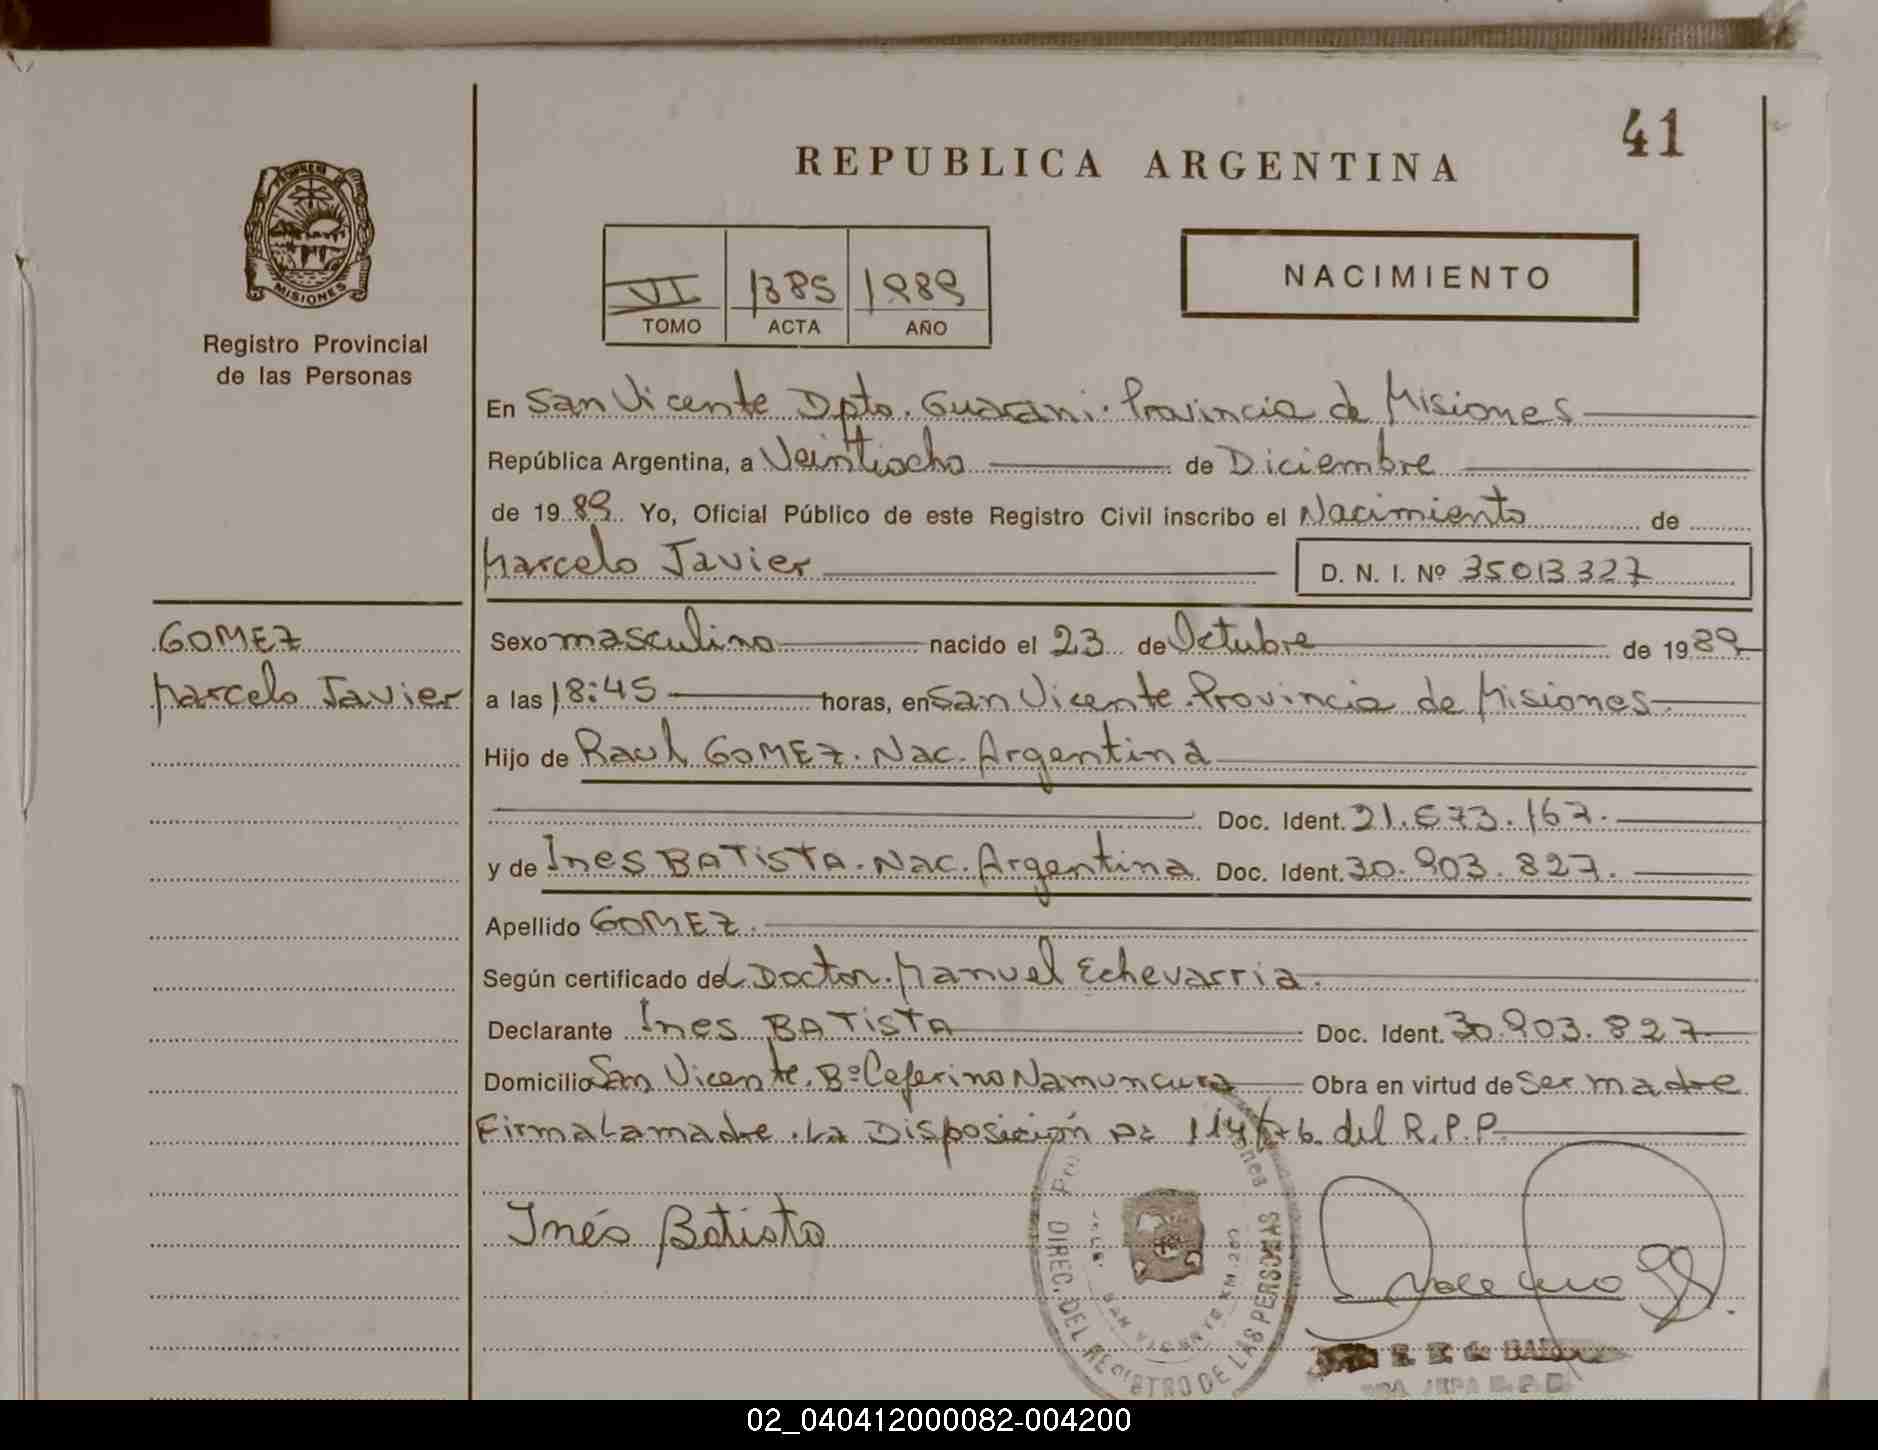 41
REPUBLICA ARGENTINA
MISIONES
Registro Provincial
de las Personas
VI 1385 1989
TOMO ACTA AÑO
NACIMIENTO
En San Vicente Dpto. Guarani. Provincia de Misiones
República Argentina, a Veintiocho de Diciembre
de 1989 Yo, Oficial Público de este Registro Civil inscribo el Nacimiento de
Marcelo Javier D. N. I. Nº 35013327
GOMEZ
Marcelo Javier
Sexo masculino nacido el 23 de Octubre de 1989
a las 18:45 horas, en San Vicente. Provincia de Misiones
Hijo de Raul GOMEZ. Nac. Argentina
Doc. Ident. 21.673.167.
y de Ines BATISTA. Nac. Argentina Doc. Ident. 30.903.827.
Apellido GOMEZ.
Según certificado del Doctor. Manuel Echevarria.
Declarante Ines BATISTA Doc. Ident. 30.903.827
Domicilio San Vicente. Bº Ceferino Namuncura Obra en virtud de Ser madre
Firma La madre. La Disposición Nº 114/76. del R.P.P.
Inés Batista
DIREC. DEL REGISTRO DE LAS PERSONAS
SAN VICENTE
02_040412000082-004200